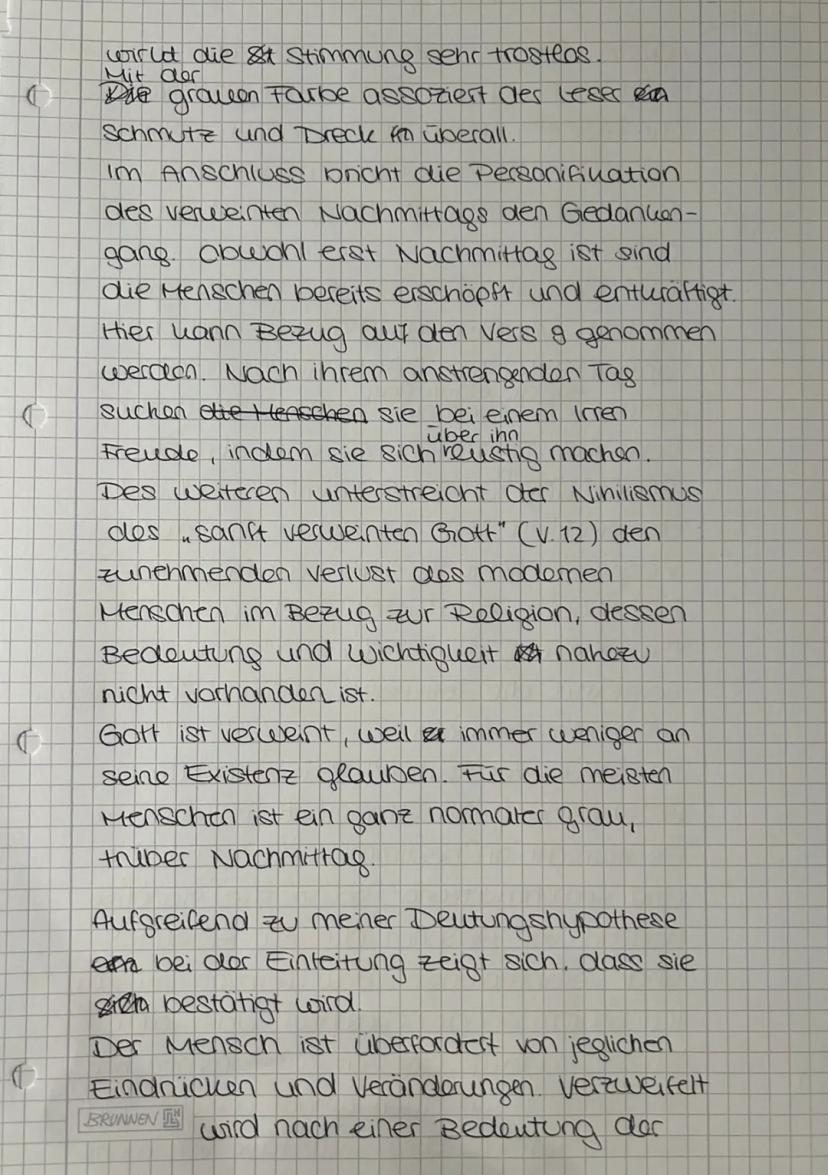 wirkt die Stimmung sehr trostlos.
Mit der
grauen Farbe assoziert der Leser
Schmutz und Dreck überall.
Im Anschluss bricht die Personifikation
des verweinten Nachmittags den Gedanken-
gang. Obwohl erst Nachmittag ist sind
die Menschen bereits erschöpft und entkräftigt.
Hier kann Bezug auf den Vers 9 genommen
werden. Nach ihrem anstrengenden Tag
suchen die Menschen sie bei einem Irren
über ihn
Freude, indem sie sich lustig machen.
Des weiteren unterstreicht der Nihilismus
des „sanft verweinten Gott" (V.12) den
zunehmenden Verlust des modernen
Menschen im Bezug zur Religion, dessen
Bedeutung und Wichtigkeit nahezu
nicht vorhanden ist.
Gott ist verweint, weil immer weniger an
seine Existenz glauben. Für die meisten
Menschen ist ein ganz normaler grau,
trüber Nachmittag.
Aufgreifend zu meiner Deutungshypothese
bei der Einleitung zeigt sich, dass sie
bestätigt wird.
Der Mensch ist überfordert von jeglichen
Eindrücken und Veränderungen. Verzweifelt
BRUNNEN wird nach einer Bedeutung der